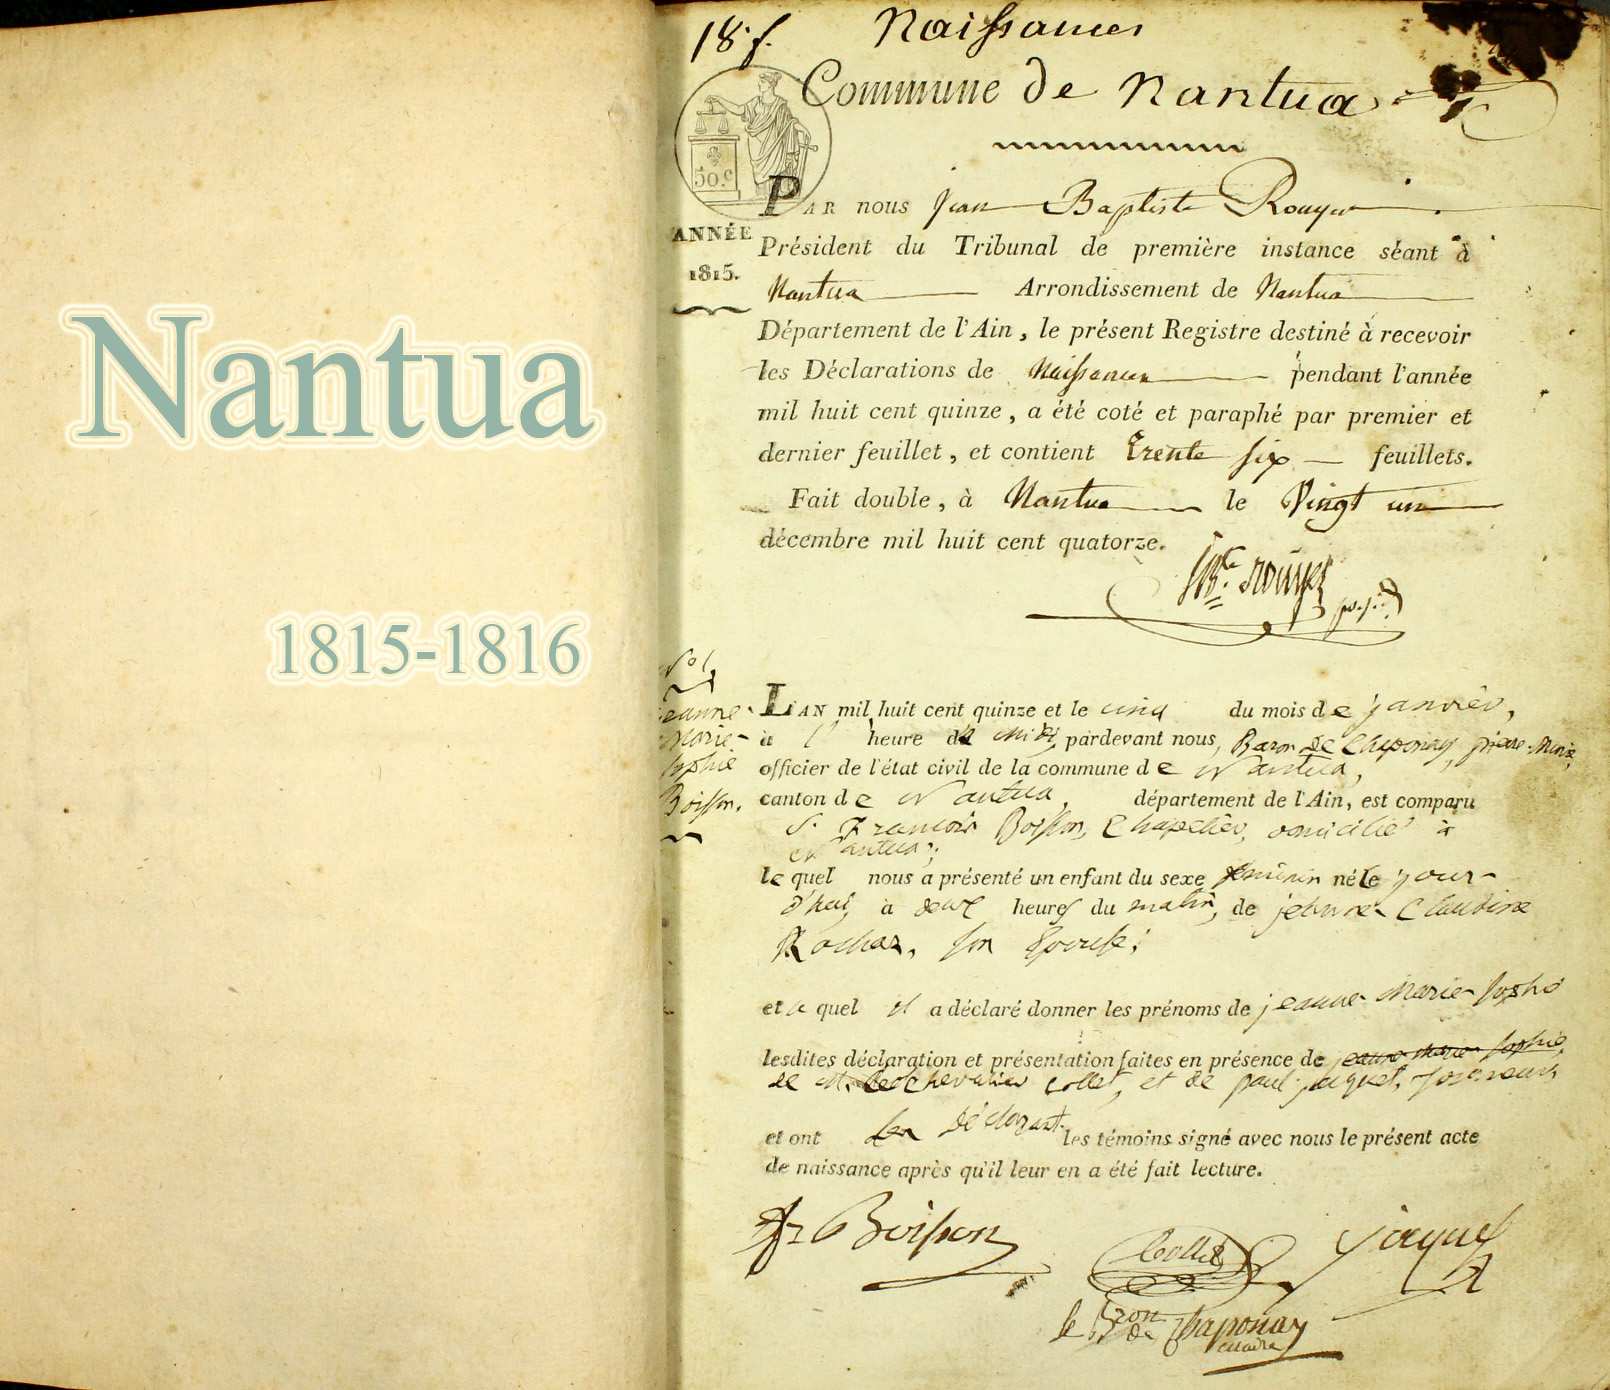 Nantua
1815-1816
18. f.
Naissances
Commune de Nantua
50.c
ANNÉE
1815.
PAR nous Jean Baptiste Rouyer
Président du Tribunal de première instance séant à
Nantua Arrondissement de Nantua
Département de l'Ain, le présent Registre destiné à recevoir
les Déclarations de Naissances pendant l'année
mil huit cent quinze, a été coté et paraphé par premier et
dernier feuillet, et contient trente six feuillets.
Fait double, à Nantua le Vingt un
décembre mil huit cent quatorze.
JBte Rouyer
N° 1
jeanne-
Marie-
Sophie
Boisson.
L'AN mil huit cent quinze et le cinq du mois de janvier,
à 1 heure de midi, pardevant nous, Baron de Chaponay, pierre-Marie,
officier de l'état civil de la commune de Nantua,
canton de Nantua, département de l'Ain, est comparu
S. François Boisson, Chapelier, domicilié à
Nantua;
lequel nous a présenté un enfant du sexe féminin né le jour-
d'hui, à deux heures du matin, de jeanne-Claudine
Rochas, son Epouse;
et a quel il a déclaré donner les prénoms de jeanne-Marie-Sophie
lesdites déclaration et présentation faites en présence de jeanne Marie Sophie,
de M. le Chevalier Collet, et de paul jaquet,
et ont Le déclarant les témoins signé avec nous le présent acte
de naissance après qu'il leur en a été fait lecture.
Fr Boisson
Collet
jaquet
le Bron de Chaponay
maire